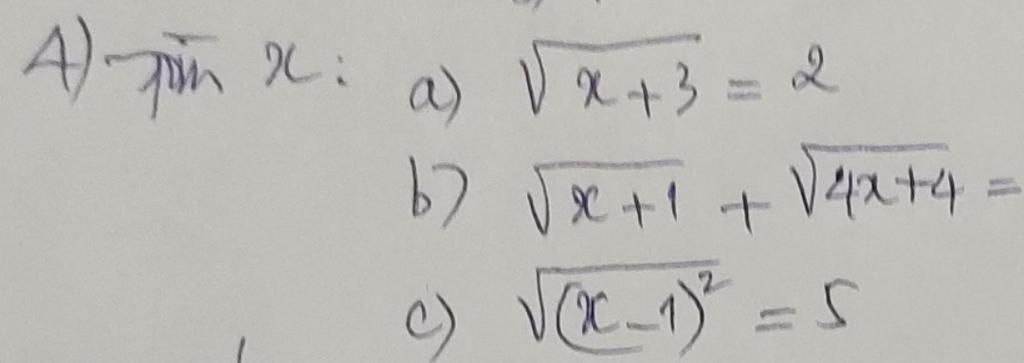 4) Tìm x: a) √(x+3) = 2
b) √(x+1) + √(4x+4) =
c) √((x-1)²) = 5